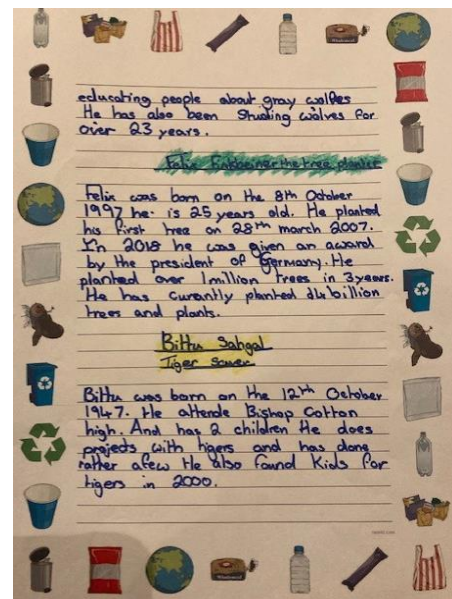 educating people about gray wolfes
He has also been Studing wolves for
over 23 years.
Felix Finkbeiner the tree planter
Felix was born on the 8th October
1997 he is 25 years old. He planted
his first tree on 28th march 2007.
In 2018 he was given an award
by the president of Germany. He
planted over 1million trees in 3years.
He has curantly planted billion
trees and plants.
Bittu Sahgal
Tiger Saver
Bittu was born on the 12th October
1947. He attende Bishop Cotton
high. And has 2 children He does
projects with tigers and has done
rather afew He also found Kids for
tigers in 2000.